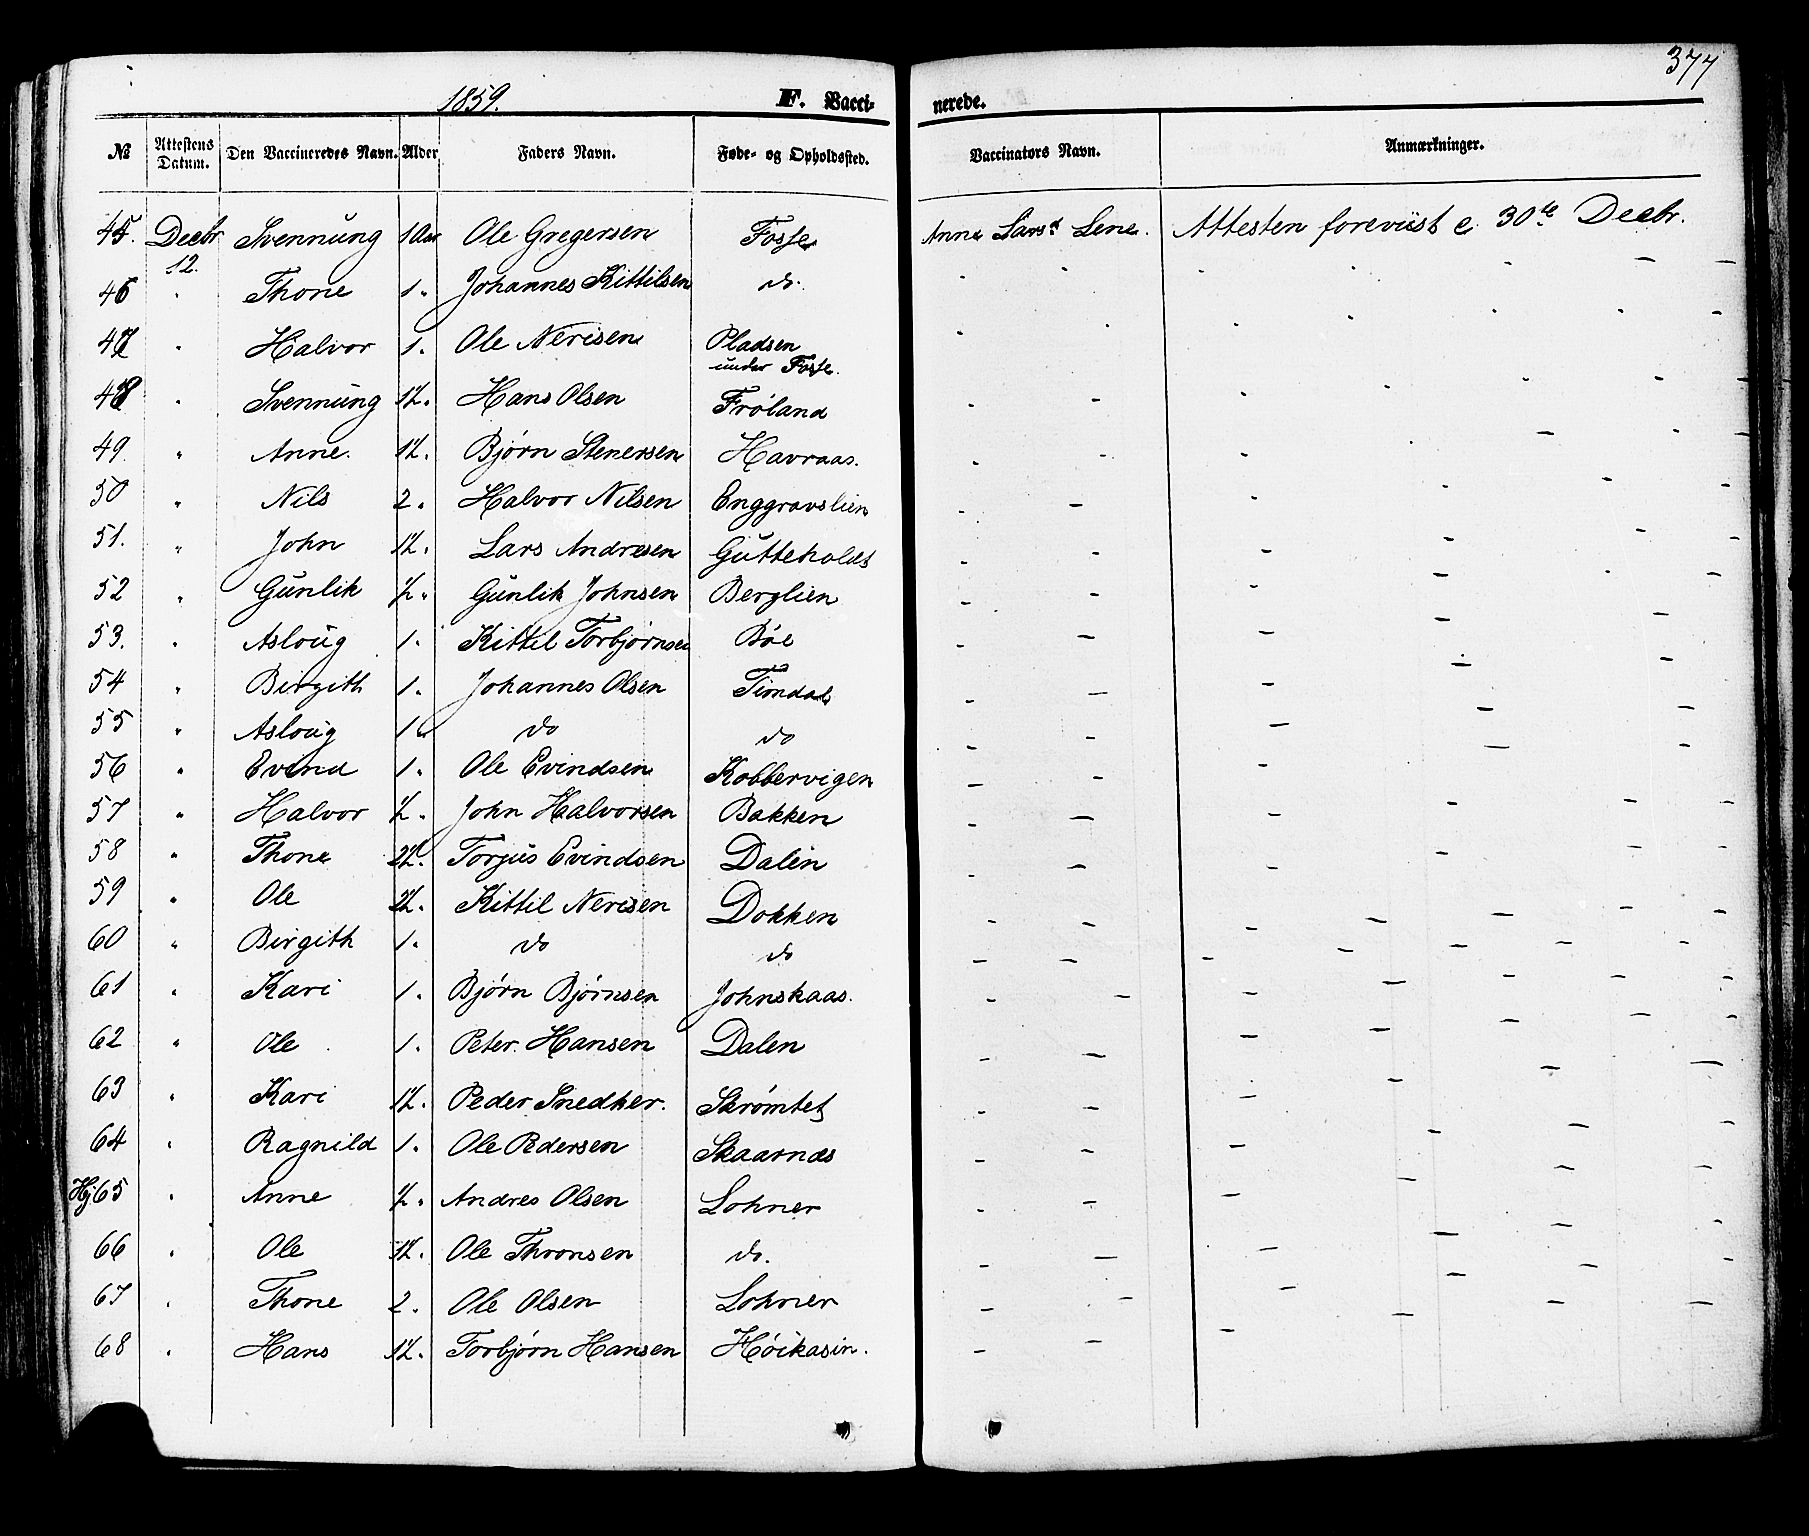 377
1859. F. Vacci- nerede.
№ Attestens Datum. Den Vaccineredes Navn. Alder Faders Navn. Føde- og Opholdssted. Vaccinators Navn. Anmærkninger.
45. Decbr 12. Svennung 1 Aar Ole Gregersen Fosse Anne Larsd Lene. Attesten foreviist 30te Decbr.
46 " Thone 1 " Johannes Kittilsen do.
47 " Halvor 1 " Ole Nerisen Pladsen under Fosse.
48 " Svennung 1½ " Hans Olsen Frøland
49 " Anne. 1½ " Bjørn Stenersen Havraas.
50 " Nils 2 " Halvor Nilsen Enggravslien
51. " John 1½ " Lars Andresen Gutteholdt
52 " Gunlik ½ " Gunlik Johnsen Berglien
53. " Asloug 1 " Kittil Torbjørnsen Bøe
54 " Birgith 1 " Johannes Olsen Timdal
55 " Asloug 1 do do
56 " Evind 1 " Ole Evindsen Kobbervigen
57 " Halvor ½ " John Halvorsen Bakken
58 " Thone 2½ " Torjus Evindsen Dalen
59 " Ole 2½ " Kittil Nerisen Dokken
60 " Birgith 1 " do do
61 " Kari 1 " Bjørn Bjørnsen Johnskaas.
62 " Ole 1 " Peter Hansen Dalen
63 " Kari 1½ " Peder Snedker. Strømtet
64 " Ragnild 1 " Ole Pedersen Skaarnæs
Hj 65 " Anne ½ " Andres Olsen Lohner
66 " Ole 1½ " Ole Thronsen do.
67 " Thone 2 " Ole Olsen Lohner
68 " Hans 1½ " Torbjørn Hansen Høikasin.